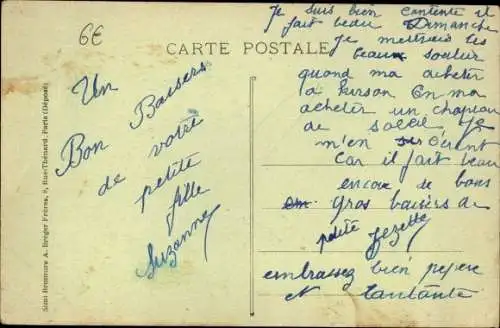 6€
CARTE POSTALE
Un
Bon Baisers
de votre
petite
fille
Suzanne
Je suis bien contente il
fait beau Dimanche
Je mettrais les
beaux soulier
quand ma acheter
a On ma
acheter un chapeau
de soleil Je
m'en
Car il fait beau
encore de bons
gros baisers de
petite
embrassez bien pepere
et tantante
Simi Bromure A. Breger Frères, 9, Rue Thénard, Paris (Déposé)